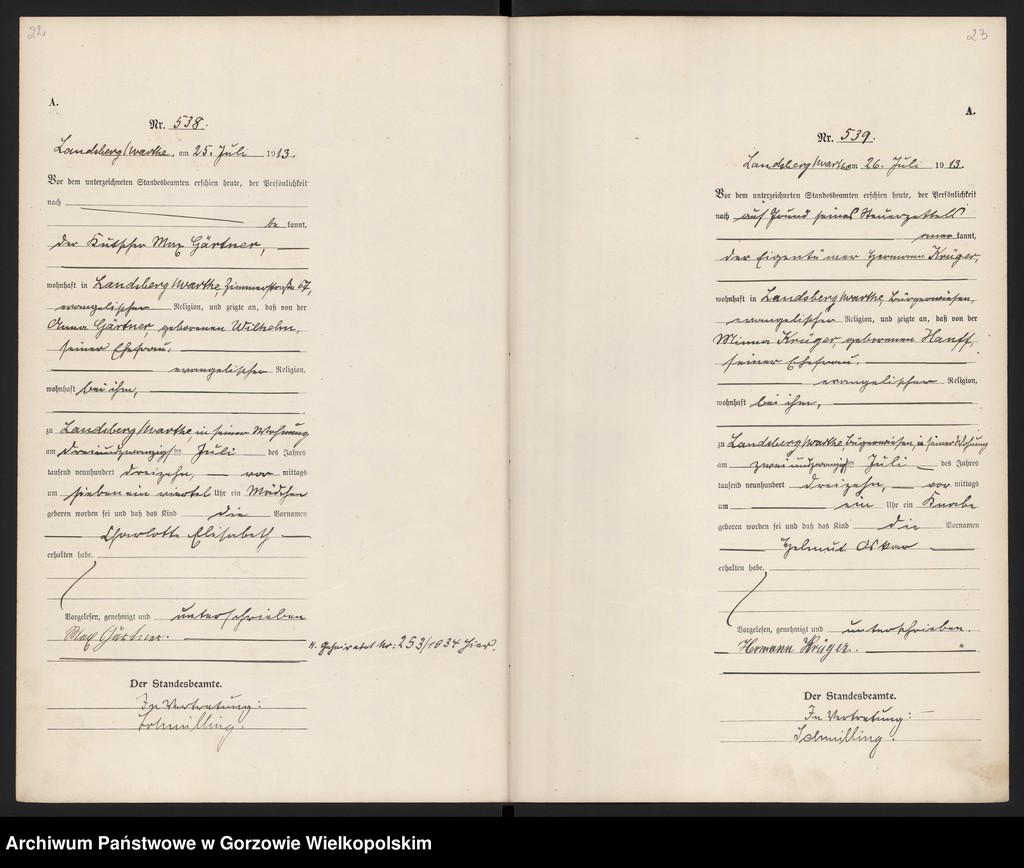 22
A.
Nr. 538.
Landsberg/Warthe, am 25. Juli 1913.
Vor dem unterzeichneten Standesbeamten erschien heute, der Persönlichkeit
nach
be kannt,
der Kutscher Max Gärtner,
wohnhaft in Landsberg/Warthe, Zimmerstraße 67,
evangelischer Religion, und zeigte an, daß von der
Anna Gärtner, geborenen Wilhelm,
seiner Ehefrau,
evangelischer Religion,
wohnhaft bei ihm,
zu Landsberg/Warthe, in seiner Wohnung
am dreiundzwanzigsten Juli des Jahres
tausend neunhundert dreizehn, vor mittags
um sieben ein viertel Uhr ein Mädchen
geboren worden sei und daß das Kind die Vornamen
Charlotte Elisabeth
erhalten habe.
Vorgelesen, genehmigt und unterschrieben
Max Gärtner.
Geheiratet Nr: 253/1934 hier.
Der Standesbeamte.
In Vertretung:
Schmilling.
23
A.
Nr. 539.
Landsberg/Warthe am 26. Juli 1913.
Vor dem unterzeichneten Standesbeamten erschien heute, der Persönlichkeit
nach auf Grund seines Steuerzettels
aner kannt,
der Eigentümer Hermann Krüger,
wohnhaft in Landsberg/Warthe, Bürgerwiesen,
evangelischer Religion, und zeigte an, daß von der
Minna Krüger geborenen Hanff,
seiner Ehefrau,
evangelischer Religion,
wohnhaft bei ihm,
zu Landsberg/Warthe, Bürgerwiesen, in seiner Wohnung
am zweiundzwanzigsten Juli des Jahres
tausend neunhundert dreizehn, vor mittags
um ein Uhr ein Knabe
geboren worden sei und daß das Kind die Vornamen
Helmut Oskar
erhalten habe.
Vorgelesen, genehmigt und unterschrieben.
Hermann Krüger.
Der Standesbeamte.
In Vertretung:
Schmilling.
Archiwum Państwowe w Gorzowie Wielkopolskim